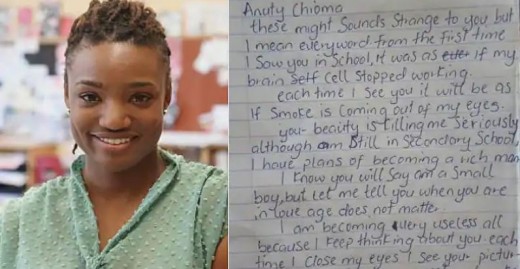 Anuty Chioma
these might Sounds Strange to you but
I mean everyword from the first time
I Saw you in School, it was as if my
brain Cell Stopped working.
each time I See you it will be as
If Smoke is Coming out of my eyes.
your beauty is killing me Seriously
although am Still in Secondary School,
I have plans of becoming a rich man
I know you will Say am a Small
boy, but let me tell you when you are
in love age does not matter.
I am becoming very useless all
because I keep thinking about you each
time I close my eyes I See your pictur